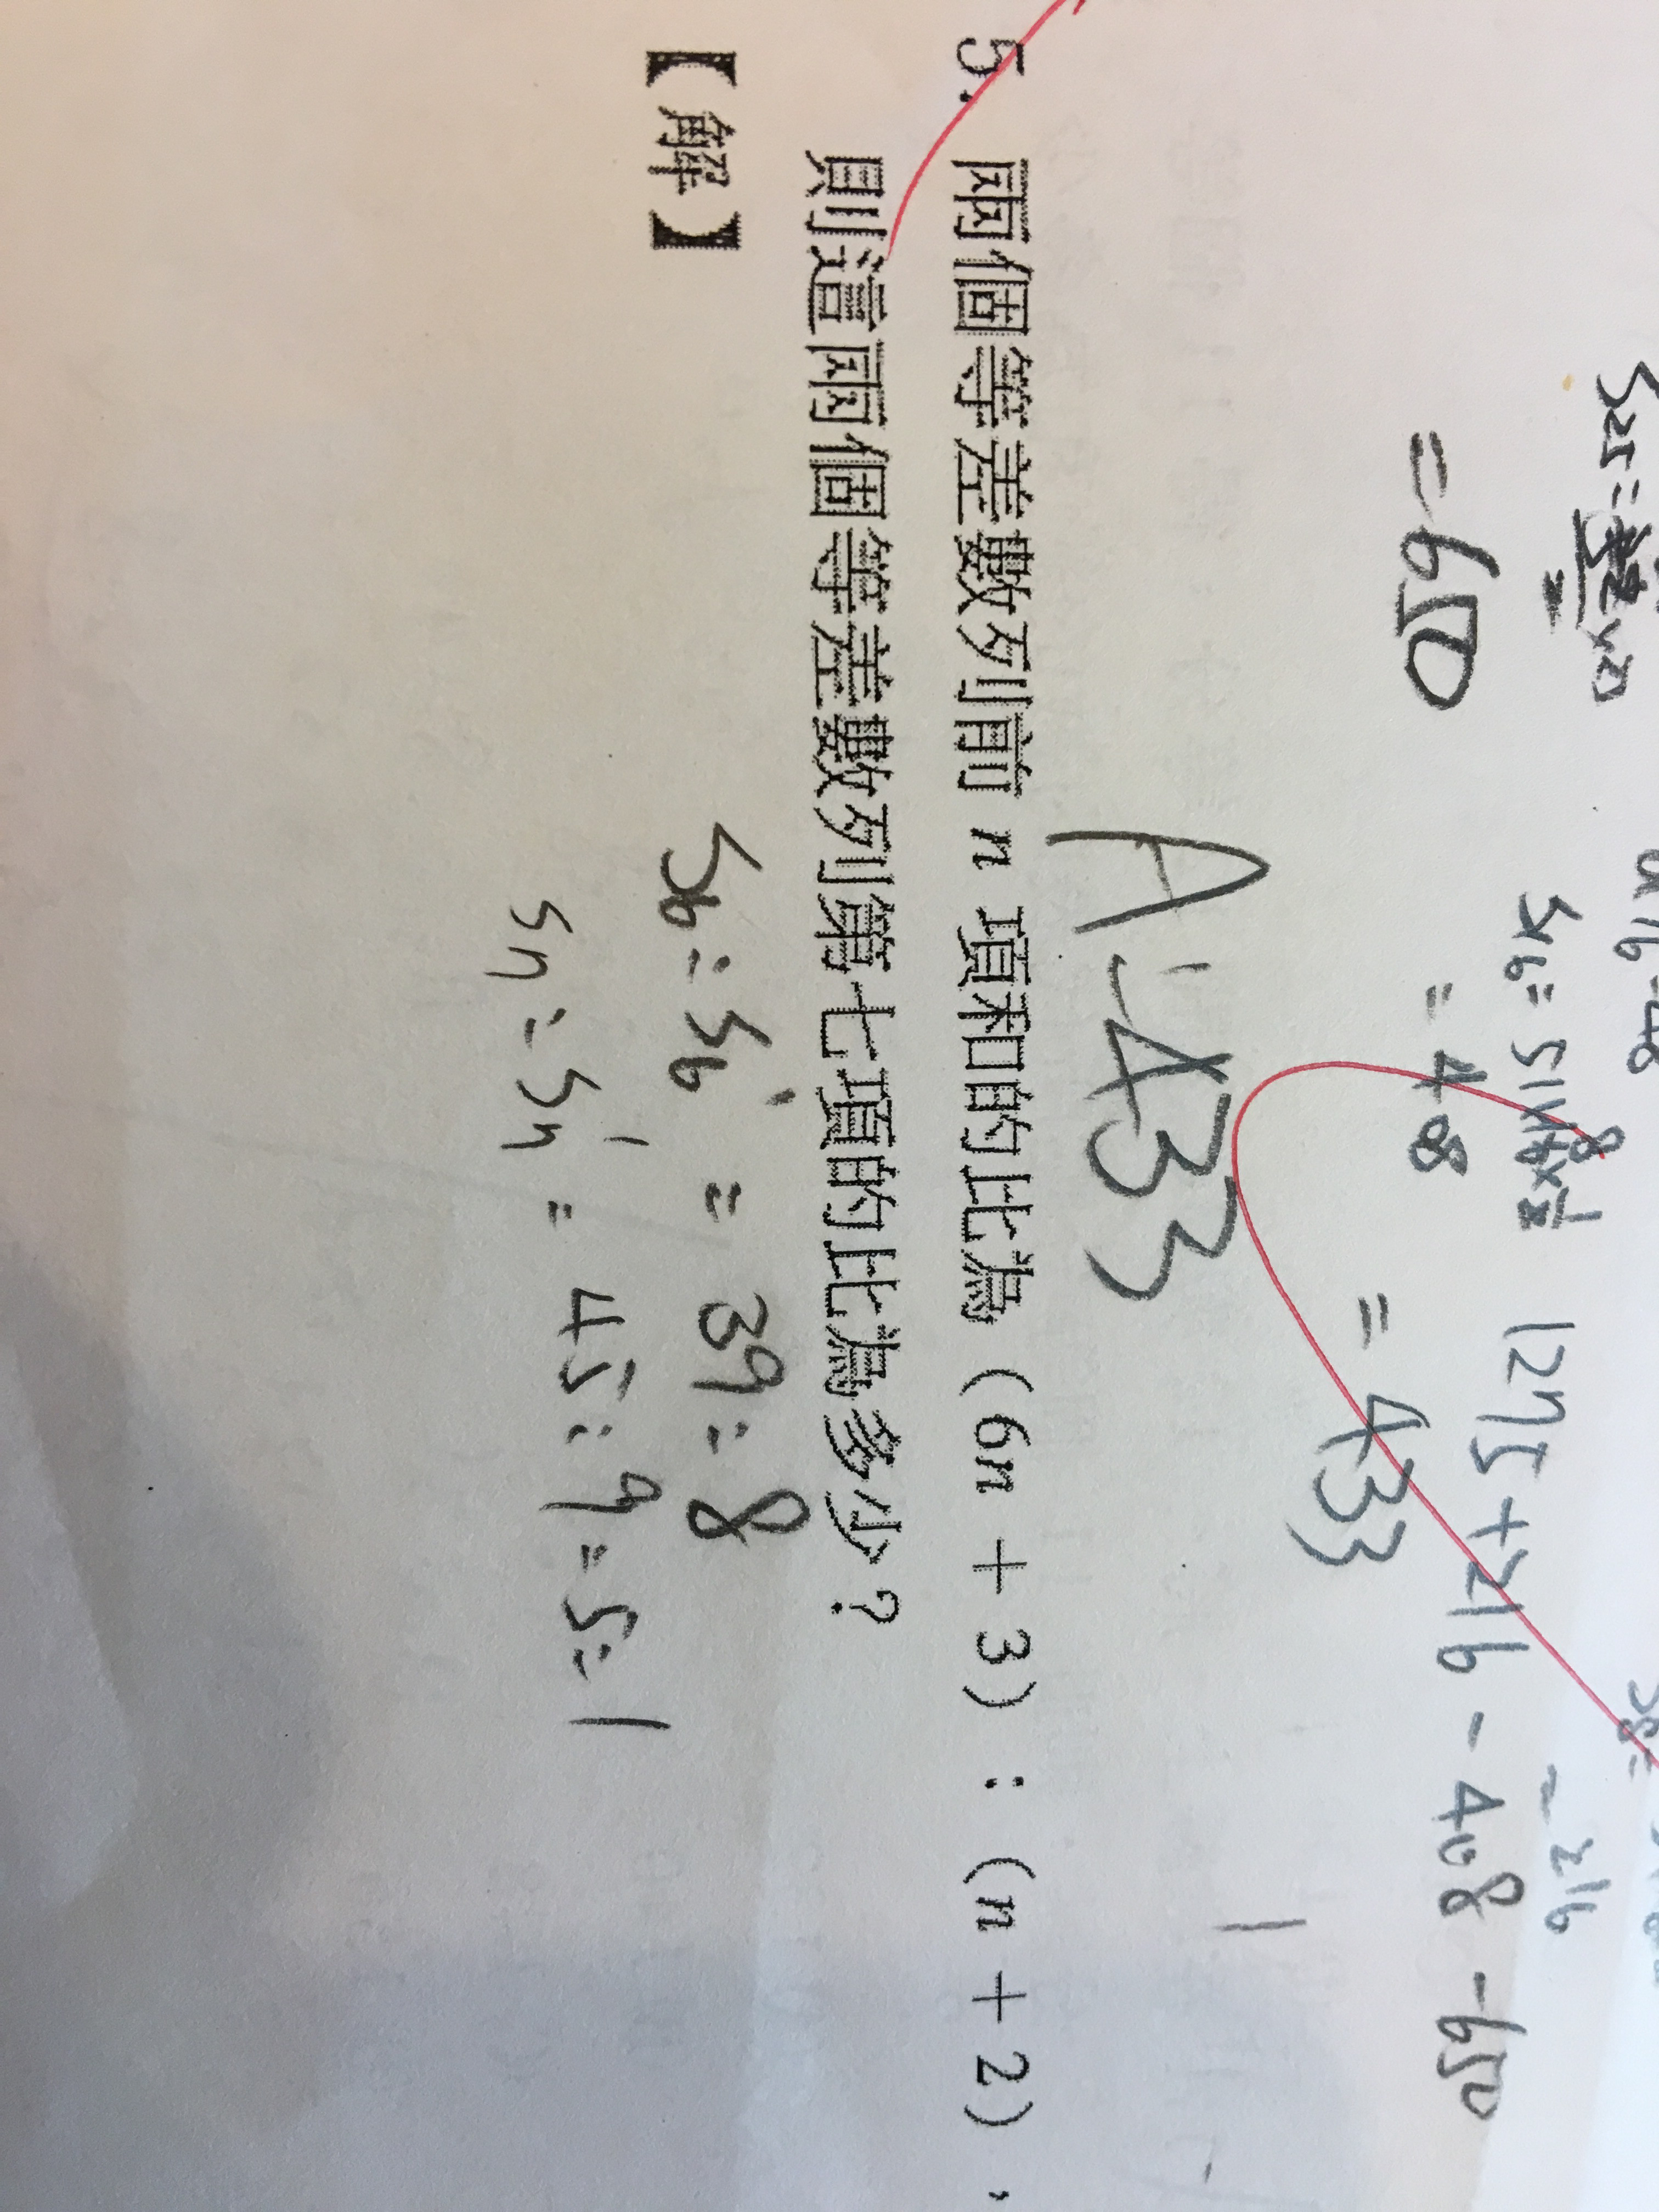 a16=48
S16=51×16×1/2
=408
1275+216-408-650
=650
=433
A:433
5. 兩個等差數列前 n 項和的比為（6n + 3）：（n + 2），
則這兩個等差數列第七項的比為多少？
【解】
S6:S6'=39:8
Sn:Sn'=45:9=5:1